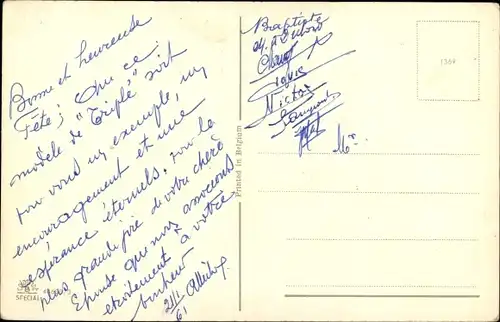 Bonne et heureuse
Fête; Que ce
modèle de "Triplé" soit
pour vous un exemple, un
encouragement et une
espérance éternels, pour la
plus grande joie de votre chère
Epouse que nous associons
étroitement à votre
bonheur
21/1
61
Baptiste
Claus
Victor
Printed in Belgium
1364
SPECIAL